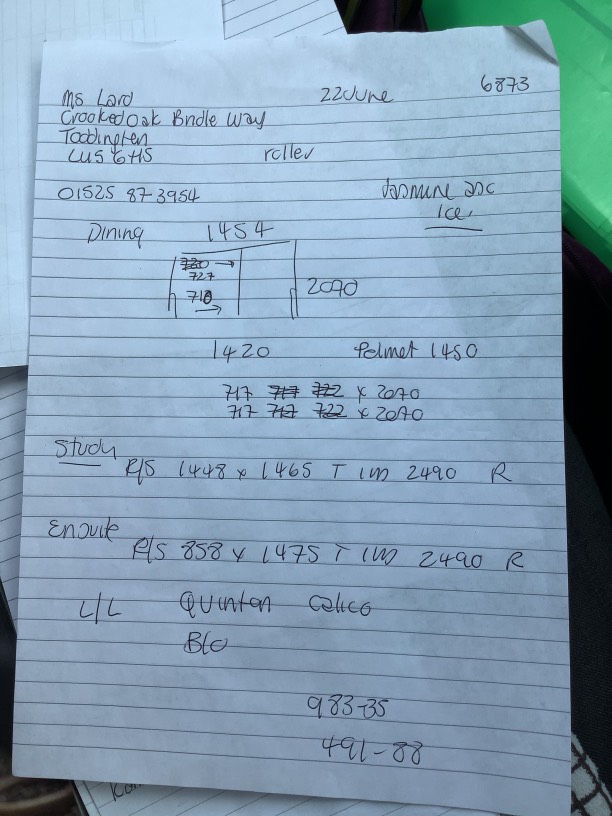 6873
Ms Lard 22 June
Crooked Oak Bridle Way
Toddington
LU5 6HS roller
01525 87-3954
Jasmine asc
Ice.
Dining 1454
727
710
2090
1420 Pelmet 1450
717 717 722 x 2070
717 717 722 x 2070
Study
R/S 1448 x 1465 T 1M 2490 R
Ensuite
R/S 858 x 1475 T 1M 2490 R
L/L Quinton Calico
B/O
983-35
491-88